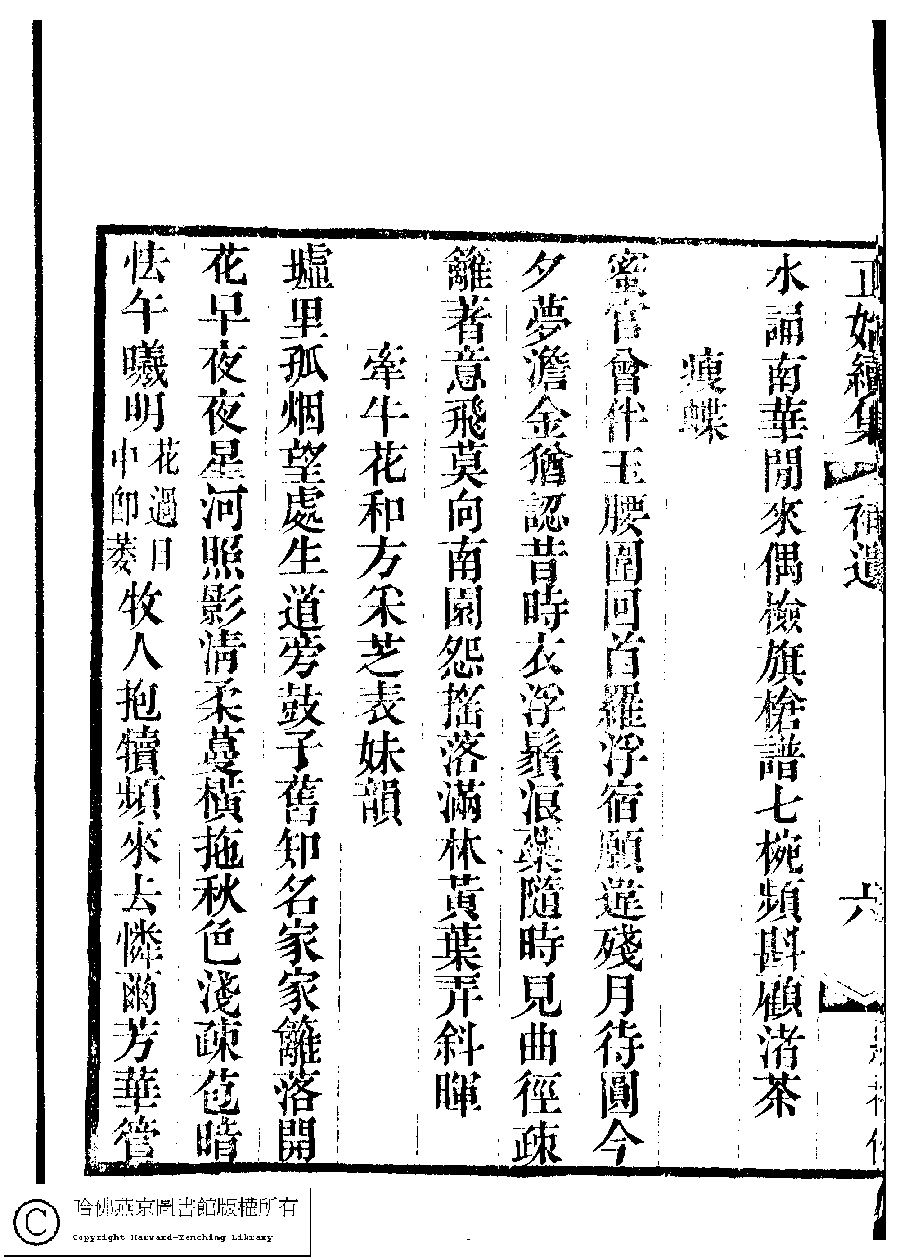 正始續集
補遺
六
水誦南華閒來偶檢旗槍譜七椀頻斟顧渚茶
瘦蝶
蜜官曾伴玉腰圍回首羅浮宿願違殘月待圓今
夕夢澹金猶認昔時衣浮鬚浪蘂隨時見曲徑疎
籬著意飛莫向南園怨搖落滿林黃葉弄斜暉
牽牛花和方采芝表妹韻
墟里孤烟望處生道旁鼓子舊知名家家籬落開
花早夜夜星河照影淸柔蔓橫拖秋色淺疎苞暗
怯午曦明花過日中卽萎牧人抱犢頻來去憐爾芳華管
哈佛燕京圖書館版權所有
Copyright Harvard-Yenching Library